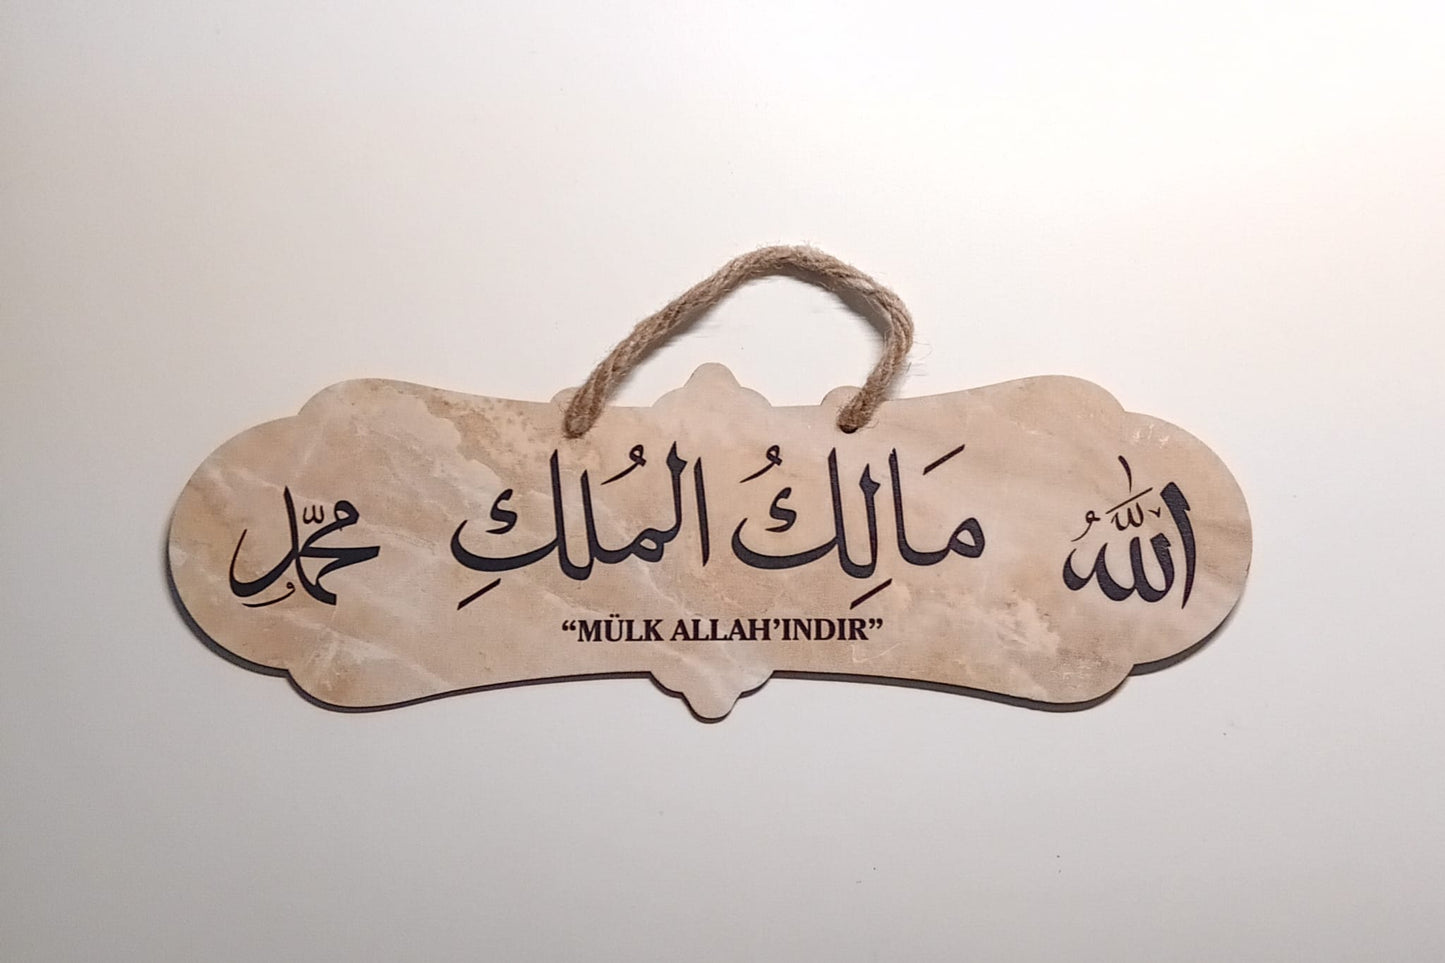 اللّٰهُ
مَالِكُ المُلكِ
محمّد
“MÜLK ALLAH’INDIR”